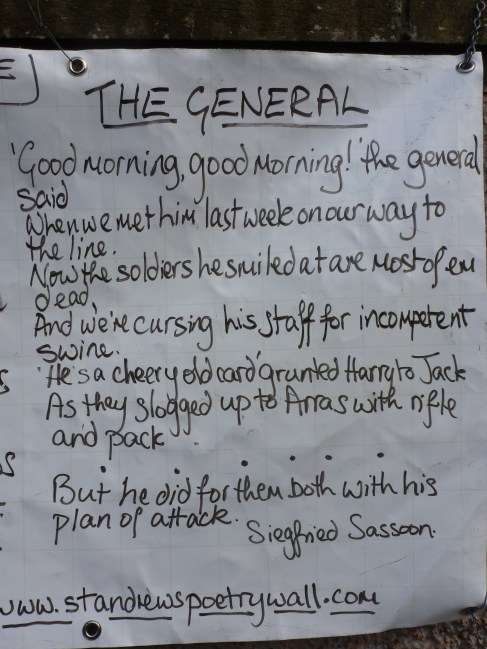 THE GENERAL
'Good morning, good Morning!' the general
said
When we met him last week on our way to
the line.
Now the soldiers he smiled at are Most of em
dead,
And we're cursing his staff for incompetent
swine.
'He's a cheery old card' grunted Harry to Jack
As they slogged up to Arras with rifle
and pack
. . . . . .
But he did for them both with his
plan of attack.
Siegfried Sassoon.
www.standrewspoetrywall.com